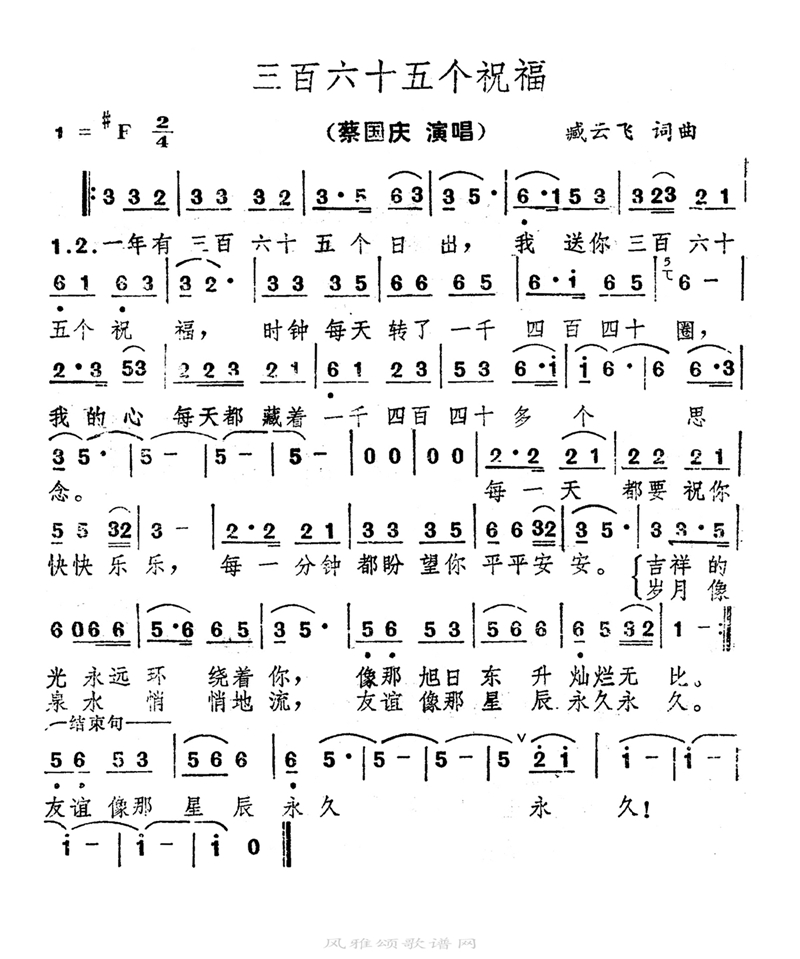 三百六十五个祝福
1 = #F 2/4 （蔡国庆 演唱） 臧云飞 词曲
‖: 3 3 2 | 3 3 3 2 | 3·5 6 3 | 3 5· | 6·1 5 3 | 3 2 3 2 1 |
1.2.一年有 三百 六十 五个日出， 我 送你 三百 六十
6 1 6 3 | 3 2· | 3 3 3 5 | 6 6 6 5 | 6·i 6 5 | 5 6 - |
五个祝 福， 时钟 每天 转了 一千 四百 四十 圈，
2·3 5 3 | 2 2 3 2 1 | 6 1 2 3 | 5 3 5 | 6·i | i 6· | 6 6·3 |
我的心 每天都 藏着 一千 四百 四十 多 个 思
3 5· | 5 - | 5 - | 5 - | 0 0 | 0 0 | 2·2 2 1 | 2 2 2 1 |
念。 每一天 都要 祝你
5 5 3 2 | 3 - | 2·2 2 1 | 3 3 3 5 | 6 6 3 2 | 3 5· | 3 3·5 |
快快乐乐， 每一分钟 都盼 望你 平平安安。 吉祥的
岁月像
6 0 6 6 | 5·6 6 5 | 3 5· | 5 6 5 3 | 5 6 6 | 6 5 3 2 | 1 - :‖
光永远环 绕着你， 像那 旭日 东 升 灿烂无 比。
泉水 悄 悄地流， 友谊 像那 星 辰 永久永 久。
结束句
5 6 5 3 | 5 6 6 6 | 6 | 5· | 5 - | 5 ∨ 2 i | i - | i - |
友谊像那 星 辰 永 久 永 久！
i - | i - | i 0 ‖
风雅颂歌谱网